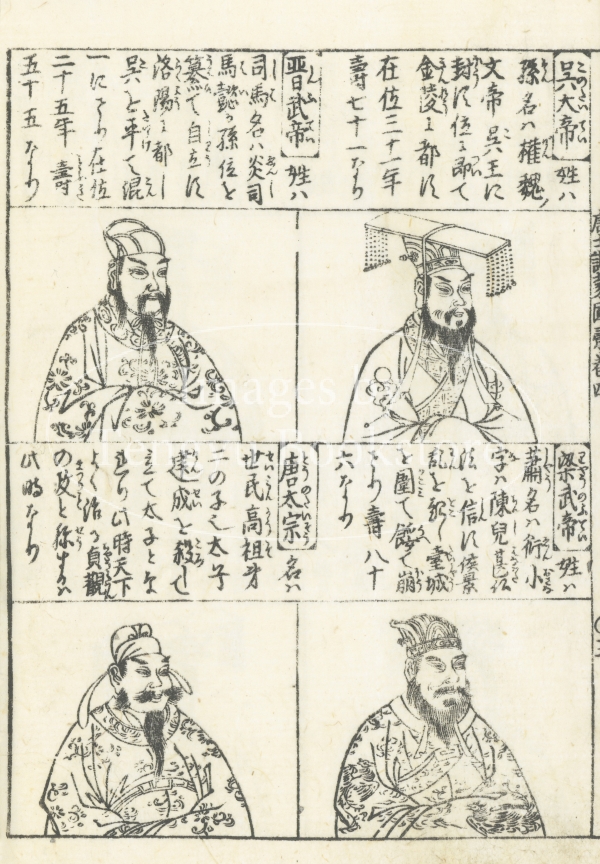 呉大帝 姓ハ
孫名ハ權魏ノ
文帝呉王に
封ず位に即て
金陵に都す
在位三十一年
壽七十一なり
晋武帝 姓ハ
司馬名ハ炎司
馬懿が孫位を
簒て自立す
洛陽に都し
呉を平て混
一にすり在位
二十五年 壽
五十五なり
梁武帝 姓ハ
蕭名ハ衍小
字ハ陳兒甚佛
法を信ず侯景
乱を起し臺城
を圍て餓て崩
ず 壽八十
六なり
唐太宗 名ハ
世民高祖才
二の子也太子
建成を殺して
立て太子となれり
此時天下
よく治る貞觀
の政と称するハ
此時なり
Images by
Tengyu Bookstore